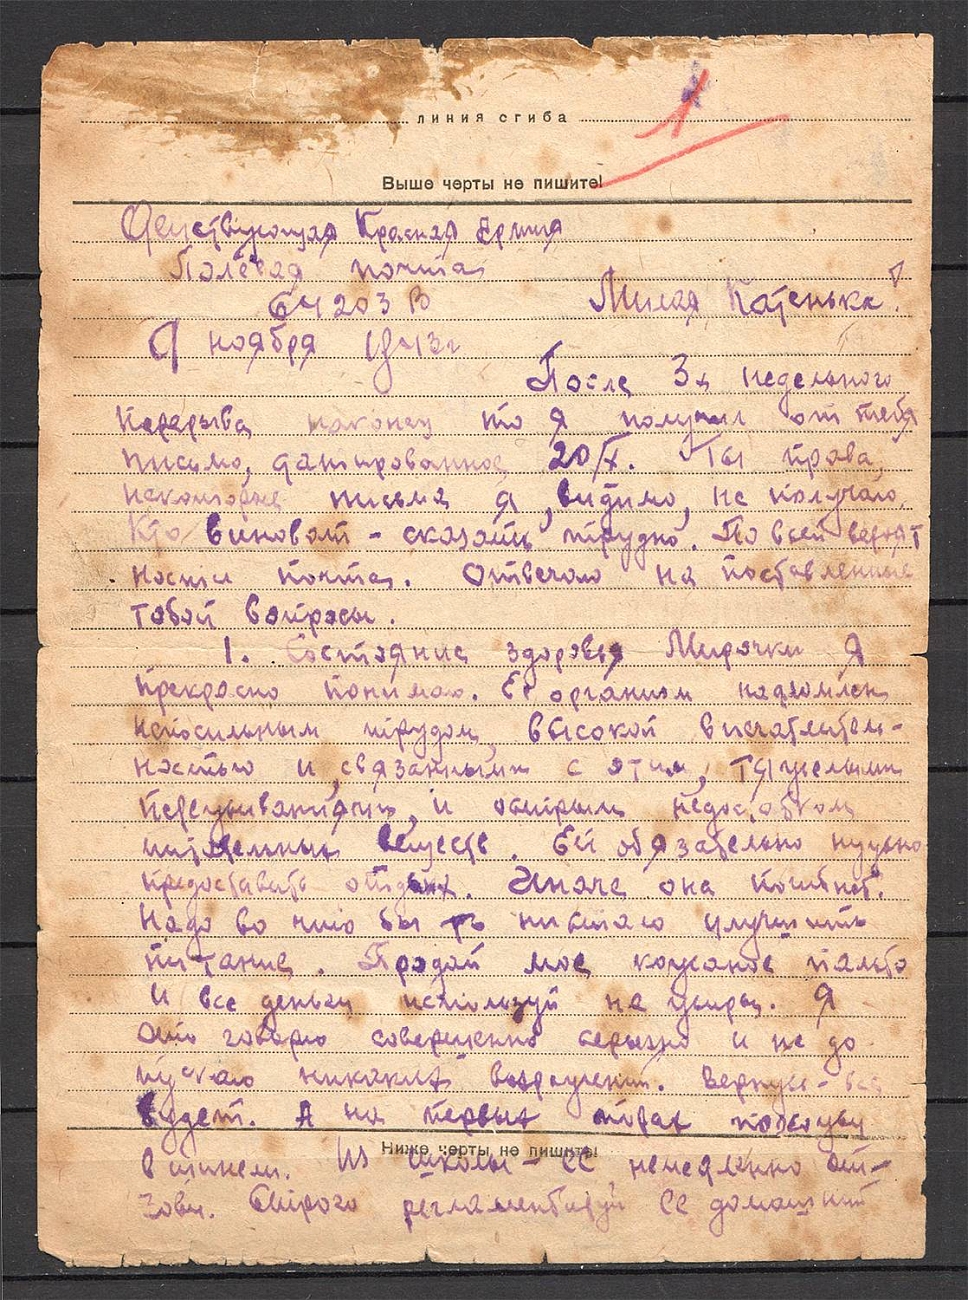 линия сгиба
Выше черты не пишите!
Действующая Красная Ермия
Полевая почта
64203 В Милая Катенька!
9 ноября 1943 г
После 3х недельного
перерыва наконец то я получил от тебя
письмо, датированное 20/X. Ты права,
некоторые письма я, видимо, не получаю.
Кто виноват - сказать трудно. По всей вероят
ности почта. Отвечаю на поставленные
тобой вопросы.
1. Состояние здоровья Мирочки я
прекрасно понимаю. Её организм надломлен
непосильным трудом, высокой впечатлитель-
ностью и, связанными с этим, тяжелыми
переживаниями, и острым недостатком
питательных веществ. Ей обязательно нужно
предоставить отдых. Иначе она погибнет.
Надо во что бы то ни стало улучшить
питание. Продай мое кожаное пальто
и все деньги используй на жиры. Я
это говорю совершенно серьезно и не до-
пускаю никаких возражений. Вернусь - все
будет. А на первых порах похожу
Ниже черты не пишите!
в шинели. Из школы - её немедленно ото-
зови. Строго регламентируй её домашний